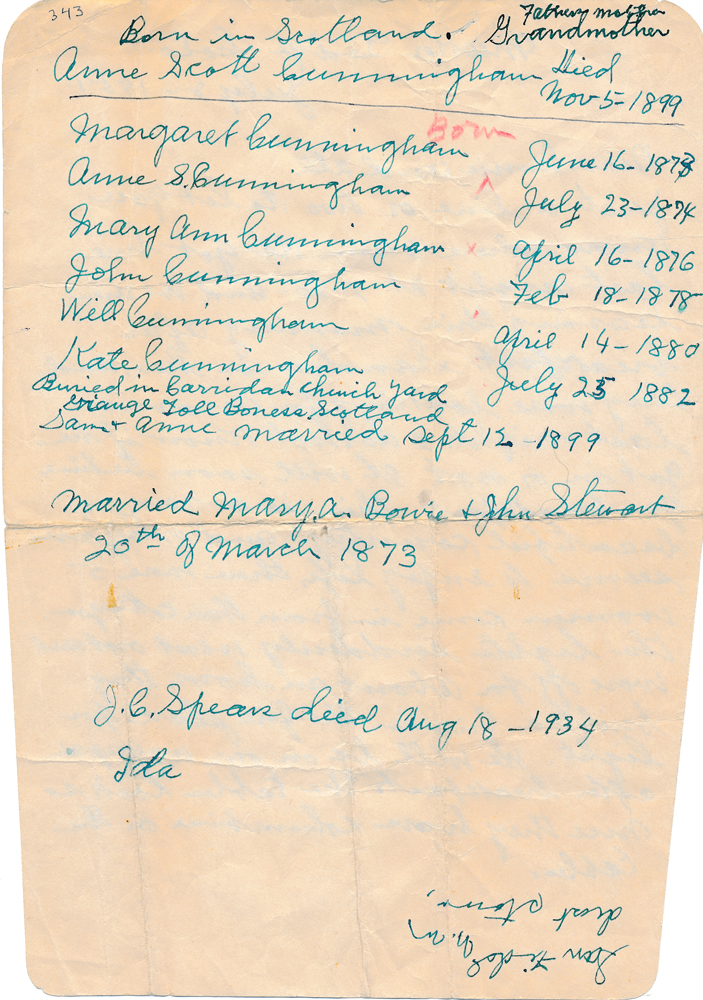 343
Born in Scotland. Fathers mother
Grandmother
Anne Scott Cunningham Died
Nov 5 - 1899
Born
Margaret Cunningham June 16 - 1873
Anne S. Cunningham July 23 - 1874
Mary Ann Cunningham April 16 - 1876
John Cunningham Feb 18 - 1878
Will Cunningham April 14 - 1880
Kate Cunningham July 25 1882
Buried in Carridan Church Yard
Toll Boness Scotland
Sam + Anne married Sept 12 - 1899
Married Mary. A. Bowie + John Stewart
20th of March 1873
J. C. Spears died Aug 18 - 1934
Ida
dust storm,
San Fidel N. M